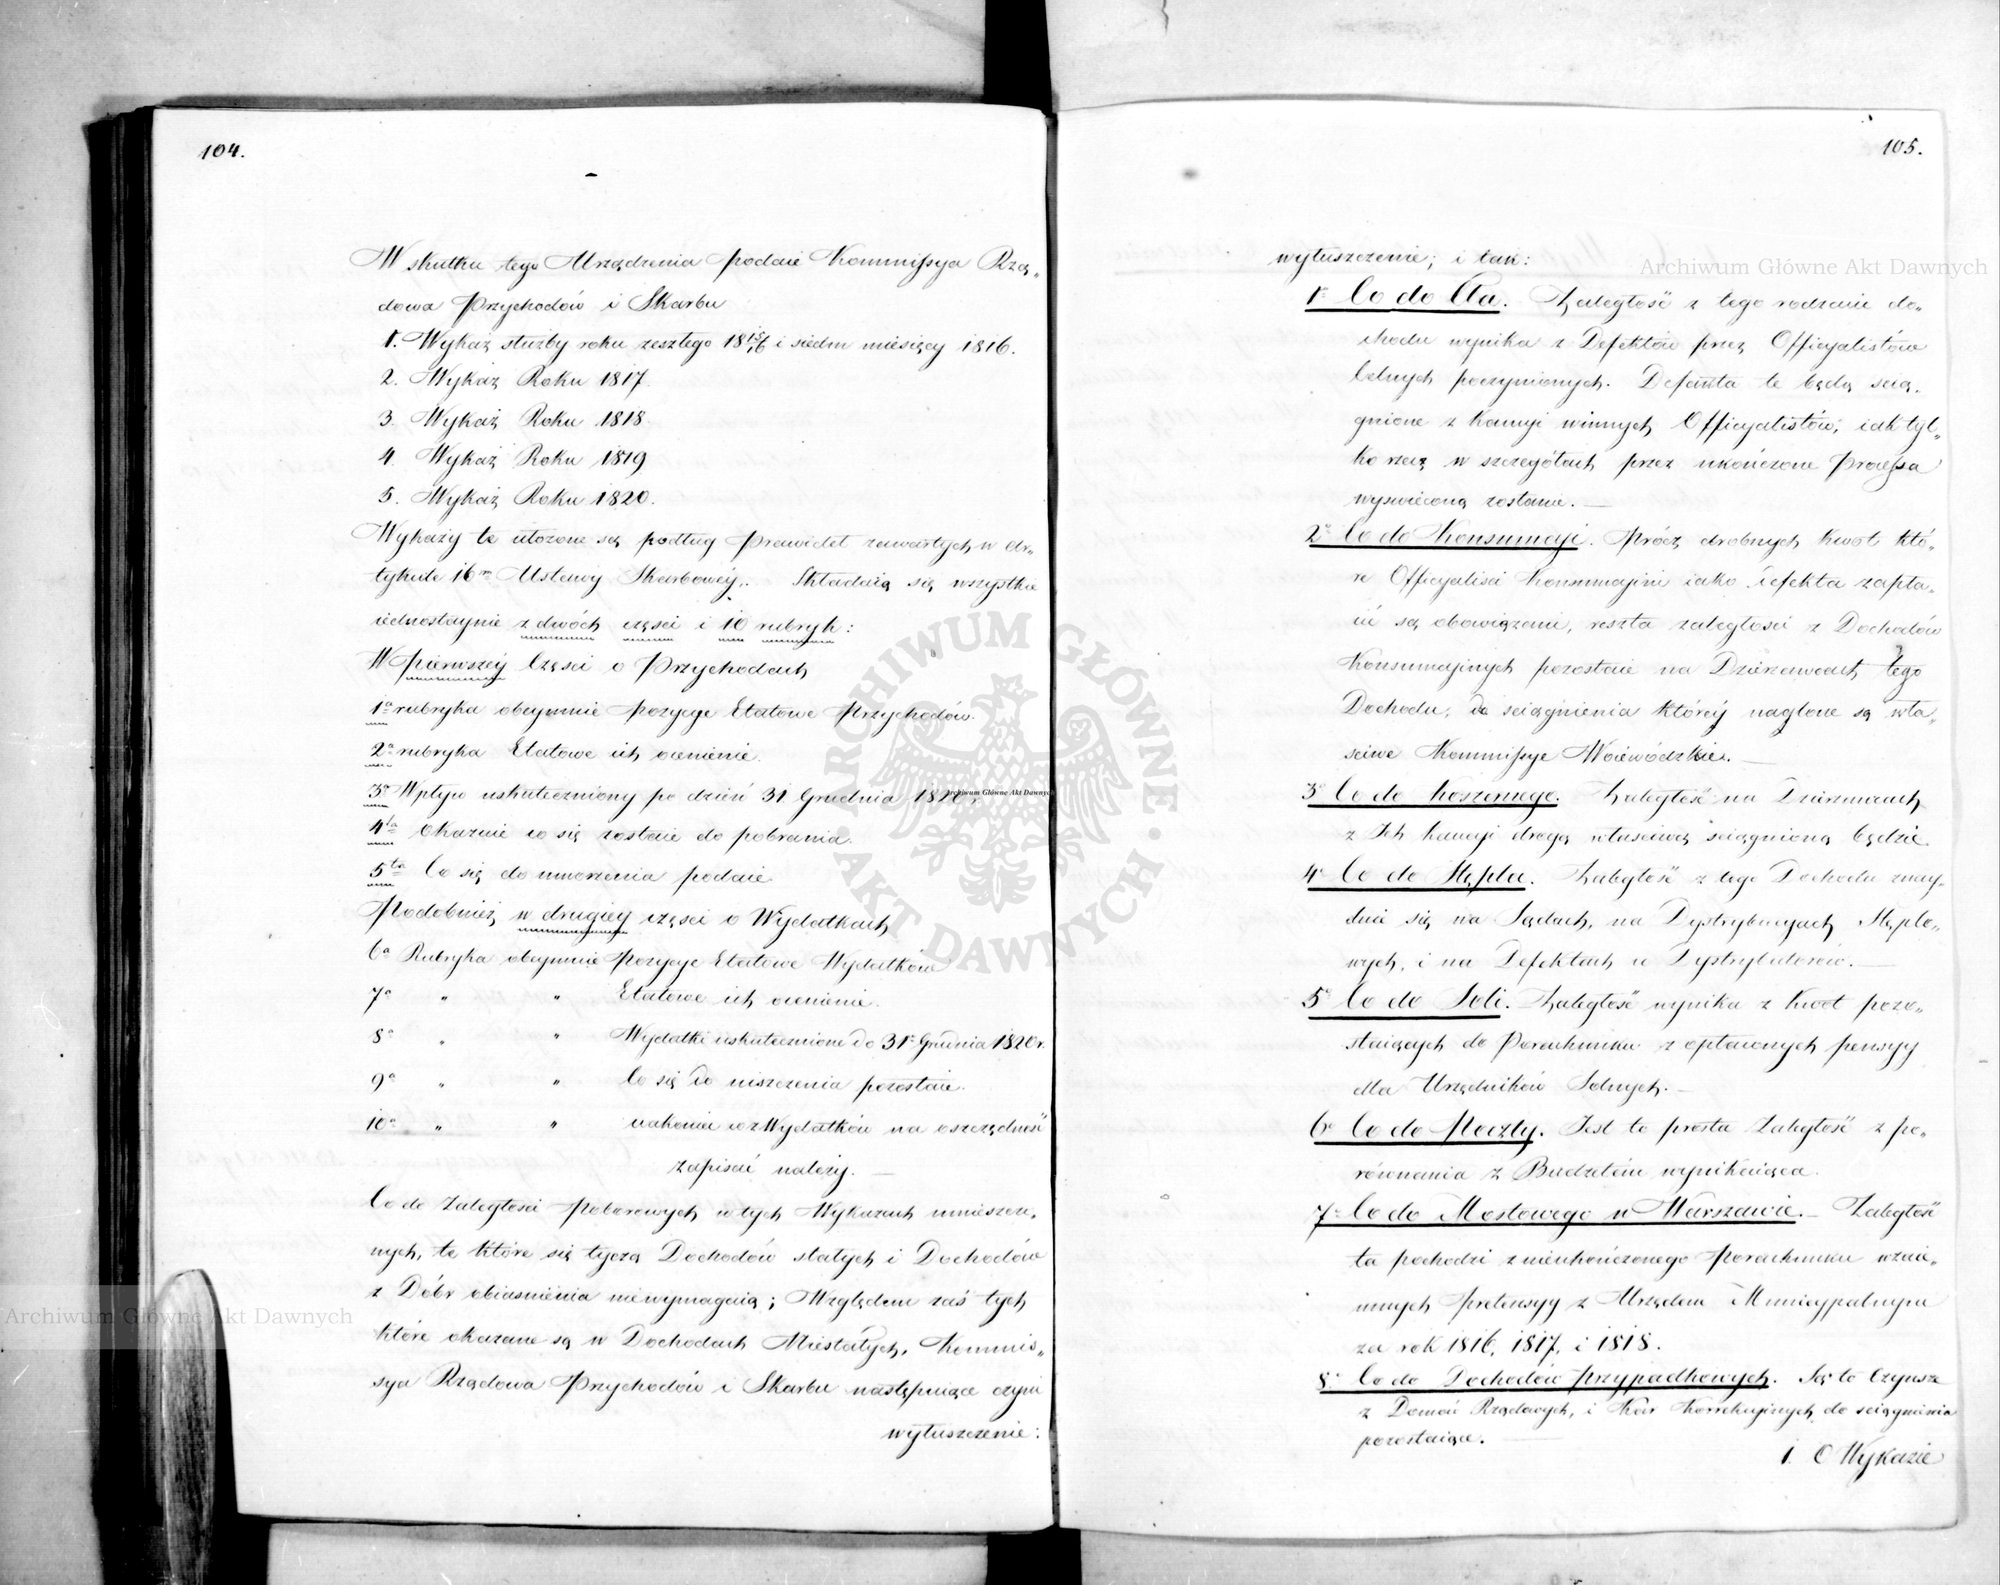 104.
W skutku tego Urządzenia podaie Kommissya Rzą„
dowa Przychodów i Skarbu
1. Wykaz służby roku zeszłego 18 15/16 i siedm miesięcy 1816.
2. Wykaz Roku 1817.
3. Wykaz Roku 1818.
4. Wykaz Roku 1819
5. Wykaz Roku 1820.
Wykazy te ułożone są podług Prawideł zawartych w Ar„
tykule 16m Ustawy Skarbowéy. Składaią się wszystkie
iednostaynie z dwóch części i 10 rubryk:
W pierwszéy Części o Przychodach
1a rubryka obeymuie Pozycye Etatowe Przychodów.
2a rubryka Etatowe ich ocenienie.
3a Wpływ uskuteczniony po dzień 31 Grudnia 1820 r.
4ta Okazuie co się zostaie do pobrania.
5ta Co się do umorzenia podaie
Podobnież w drugiey części o Wydatkach
6a Rubryka obeymuie Pozycye Etatowe Wydatków
7a " " Etatowe ich ocenienie.
8a " " Wydatki uskutecznione do 31o Grudnia 1820 r.
9a " " Co się do uiszczenia pozostaie.
10a " " nakoniec co z Wydatków na oszczędność
zapisać należy. —
Co do Zaległości Poborowych w tych Wykazach umieszczo„
nych, te które się tyczą Dochodów stałych i Dochodów
z Dóbr obiaśnienia niewymagaią; Względem zaś tych
które okazane są w Dochodach Niestałych, Kommis„
sya Rządowa Przychodów i Skarbu następuiące czyni
wyłuszczenie:
105.
wyłuszczenie; i tak:
1o Co do Cła. Zaległość z tego rodzaiu do„
chodu wynika z Defektów przez Officyalistów
Celnych poczynionych. Defekta te będą ścią„
gnione z Kaucyi winnych Officyalistów, iak tyl„
ko rzecz w szczegółach przez ukończone Processa
wyświeconą zostanie. —
2o Co do Konsumcyi. Prócz drobnych kwot któ„
re Officyaliści Konsumcyini iako defekta zapła„
cić są obowiązani, reszta zaległości z Dochodów
Konsumcyinych pozostaie na Dzierżawcach tego
Dochodu, do ściągnienia któréy naglone są wła„
ściwe Kommissye Woiewódzkie. —
3o Co do Koszernego. Zaległość na Dzierżawcach
z Ich kaucyi drogą właściwą ściągnioną będzie.
4o Co do Stępla. Zaległość z tego Dochodu znay„
duie się na Sądach, na Dystrybucyach Stęplo„
wych, i na Defektach u Dystrybutorów. —
5o Co do Soli. Zaległość wynika z kwot pozo„
staiących do Porachunku z opłaconych pensyy
dla Urzędników Solnych. —
6o Co do Poczty. Jest to prosta Zaległość z po„
równania z Budżetem wynikaiąca.
7o Co do Mostowego w Warszawie. — Zaległość
ta pochodzi z nieukończonego Porachunku wzaie„
mnych Pretensyy z Urzędem Municypalnym
za rok 1816, 1817, i 1818.
8o Co do Dochodów Przypadkowych. Są to Czynsze
z Domów Rządowych, i Kar Korrekcyinych do ściągnienia
pozostaiące. —
1. O Wykazie
Archiwum Główne Akt Dawnych
Archiwum Główne Akt Dawnych
Archiwum Główne Akt Dawnych
ARCHIWUM GŁÓWNE · AKT DAWNYCH ·